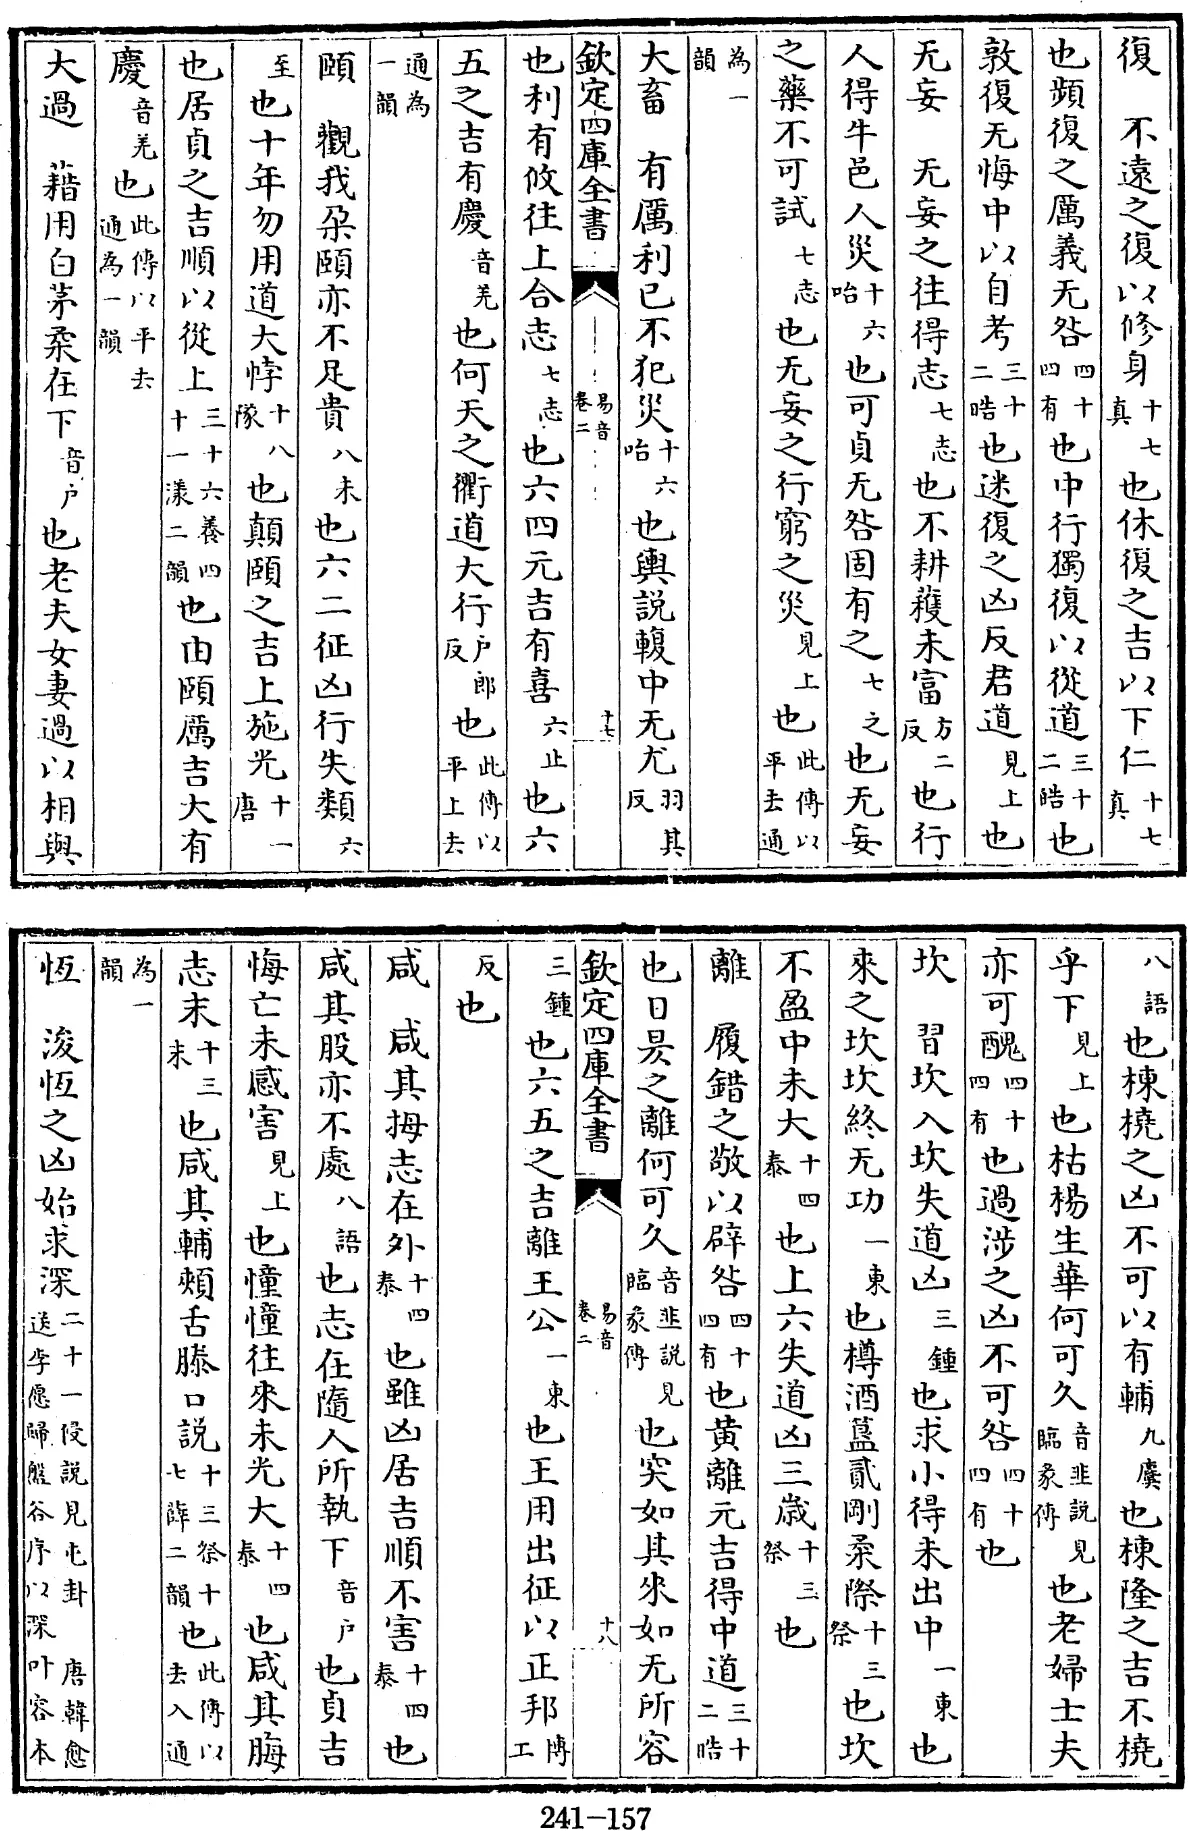 復　不遠之復以修身十七真也休復之吉以下仁十七真
也頻復之厲義无咎四十四有也中行獨復以從道三十二晧也
敦復无悔中以自考三十二晧也迷復之凶反君道見上也
无妄　无妄之往得志七志也不耕穫未富方二反也行
人得牛邑人災十六咍也可貞无咎固有之七之也无妄
之藥不可試七志也无妄之行窮之災見上也此傳以平去通
為一韻
大畜　有厲利已不犯災十六咍也輿說輹中无尤羽其反
欽定四庫全書　易音卷二　十七
也利有攸往上合志七志也六四元吉有喜六止也六
五之吉有慶音羌也何天之衢道大行戶郎反也此傳以平上去
通為一韻
頤　觀我朶頤亦不足貴八未也六二征凶行失類六
至也十年勿用道大悖十八隊也顛頤之吉上施光十一唐
也居貞之吉順以從上三十六養四十一漾二韻也由頤厲吉大有
慶音羌也此傳以平去通為一韻
大過　藉用白茅柔在下音戶也老夫女妻過以相與
八語也棟橈之凶不可以有輔九麌也棟隆之吉不橈
乎下見上也枯楊生華何可久音韭說見臨彖傳也老婦士夫
亦可醜四十四有也過涉之凶不可咎四十四有也
坎　習坎入坎失道凶三鍾也求小得未出中一東也
來之坎坎終无功一東也樽酒簋貳剛柔際十三祭也坎
不盈中未大十四泰也上六失道凶三歲十三祭也
離　履錯之敬以辟咎四十四有也黃離元吉得中道三十二晧
也日昃之離何可久音韭說見臨彖傳也突如其來如无所容
欽定四庫全書　易音卷二　十八
三鍾也六五之吉離王公一東也王用出征以正邦博工
反也
咸　咸其拇志在外十四泰也雖凶居吉順不害十四泰也
咸其股亦不處八語也志在隨人所執下音戶也貞吉
悔亡未感害見上也憧憧往來未光大十四泰也咸其脢
志末十三末也咸其輔頰舌滕口說十三祭十七薛二韻也此傳以去入通
為一韻
恆　浚恆之凶始求深二十一侵說見屯卦　唐韓愈送李愿歸盤谷序以深叶容本
241-157